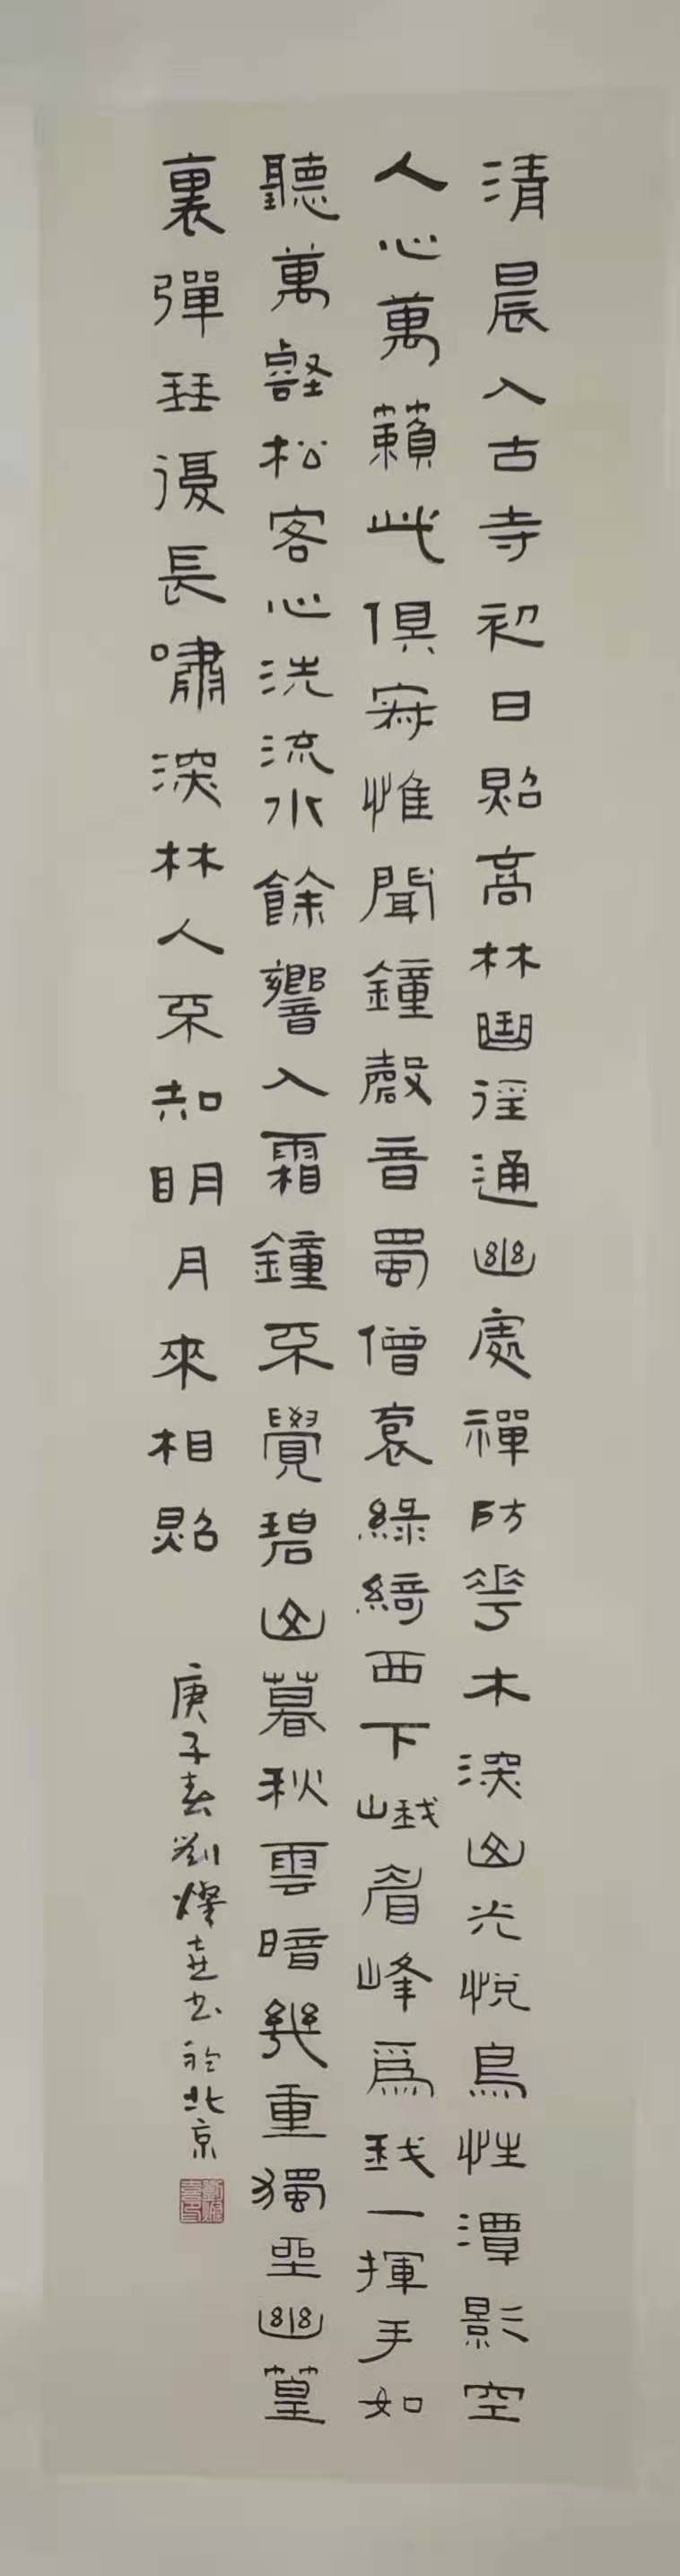 清晨入古寺初日照高林曲徑通幽處禪房花木深山光悅鳥性潭影空
人心萬籟此俱寂惟聞鐘磬音蜀僧袌綠綺西下峨眉峰爲我一揮手如
聽萬壑松客心洗流水餘響入霜鐘不覺碧山暮秋雲暗幾重獨坐幽篁
裏彈琴復長嘯深林人不知明月來相照
庚子春劉燦書於北京